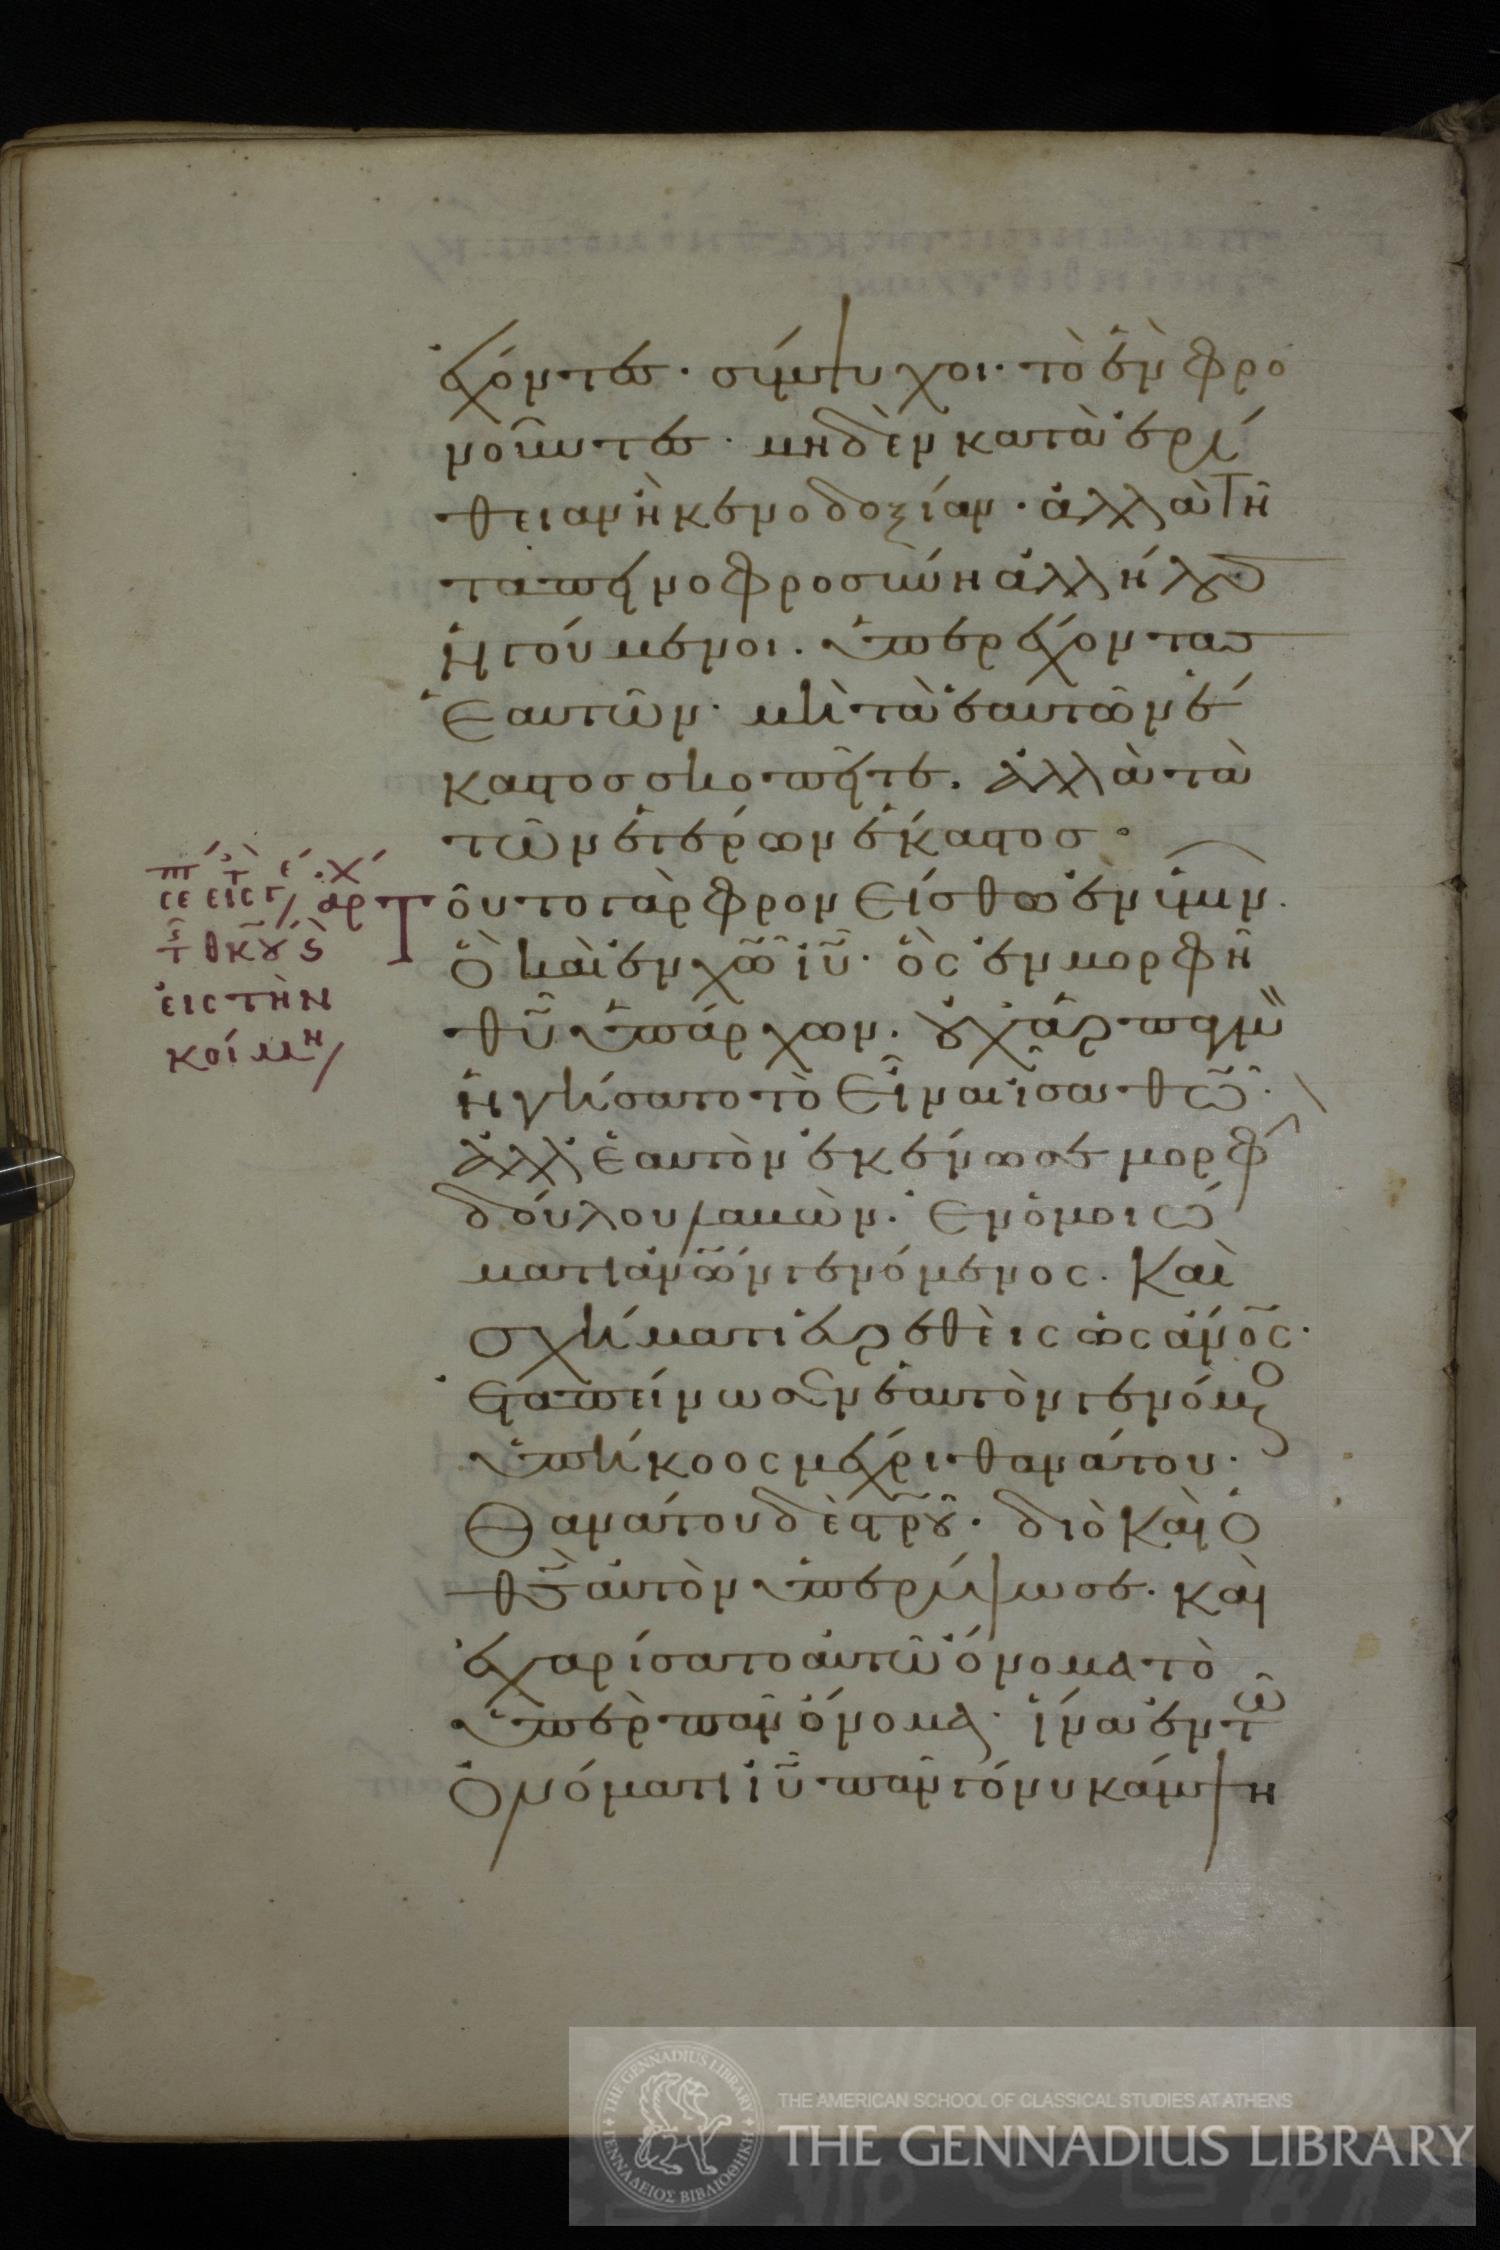 ἔχοντες· σύμψυχοι· τὸ ἓν φρο
νοῦντες· μηδὲν κατὰ ἐρί
θειαν ἢ κενοδοξίαν· ἀλλὰ τῆ
ταπεινοφροσύνη ἀλλήλους
ἡγούμενοι· ὑπερέχοντας
ἑαυτῶν· μὴ τὰ ἑαυτῶν ἕ
καστος σκοπεῖτε. ἀλλὰ τὰ
τῶν ἑτέρων ἕκαστος·
Τοῦτο γὰρ φρονείσθω ἐν ὑμῖν.
ὃ καὶ ἐν χῶ ἰῦ· ὃς ἐν μορφῆ
θῦ ὑπάρχων· οὐχ ἁρπαγμὸν
ἡγήσατο τὸ εἶναι ἴσα θῶ·
ἀλλ' ἑαυτὸν ἐκένωσε μορφὴν
δούλου λαβών· ἐν ὁμοιώ
ματι ἀνῶν γενόμενος· καὶ
σχήματι εὑρεθεὶς ὡς ἀνος·
ἐταπείνωσεν ἑαυτὸν γενόμενος
ὑπήκοος μέχρι θανάτου·
θανάτου δὲ στρου· διὸ καὶ ὁ
θς αὐτὸν ὑπερύψωσε· καὶ
ἐχαρίσατο αὐτῶ ὄνομα τὸ
ὑπὲρ πᾶν ὄνομα· ἵνα ἐν τῶ
ὀνόματι ἰῦ πᾶν γόνυ κάμψη
σε εις τ/ ἀρ
τ θκου ς
εἰς τὴν
κοίμη/
THE GENNADIUS LIBRARY
ΓΕΝΝΑΔΕΙΟΣ ΒΙΒΛΙΟΘΗΚΗ
THE AMERICAN SCHOOL OF CLASSICAL STUDIES AT ATHENS
THE GENNADIUS LIBRARY